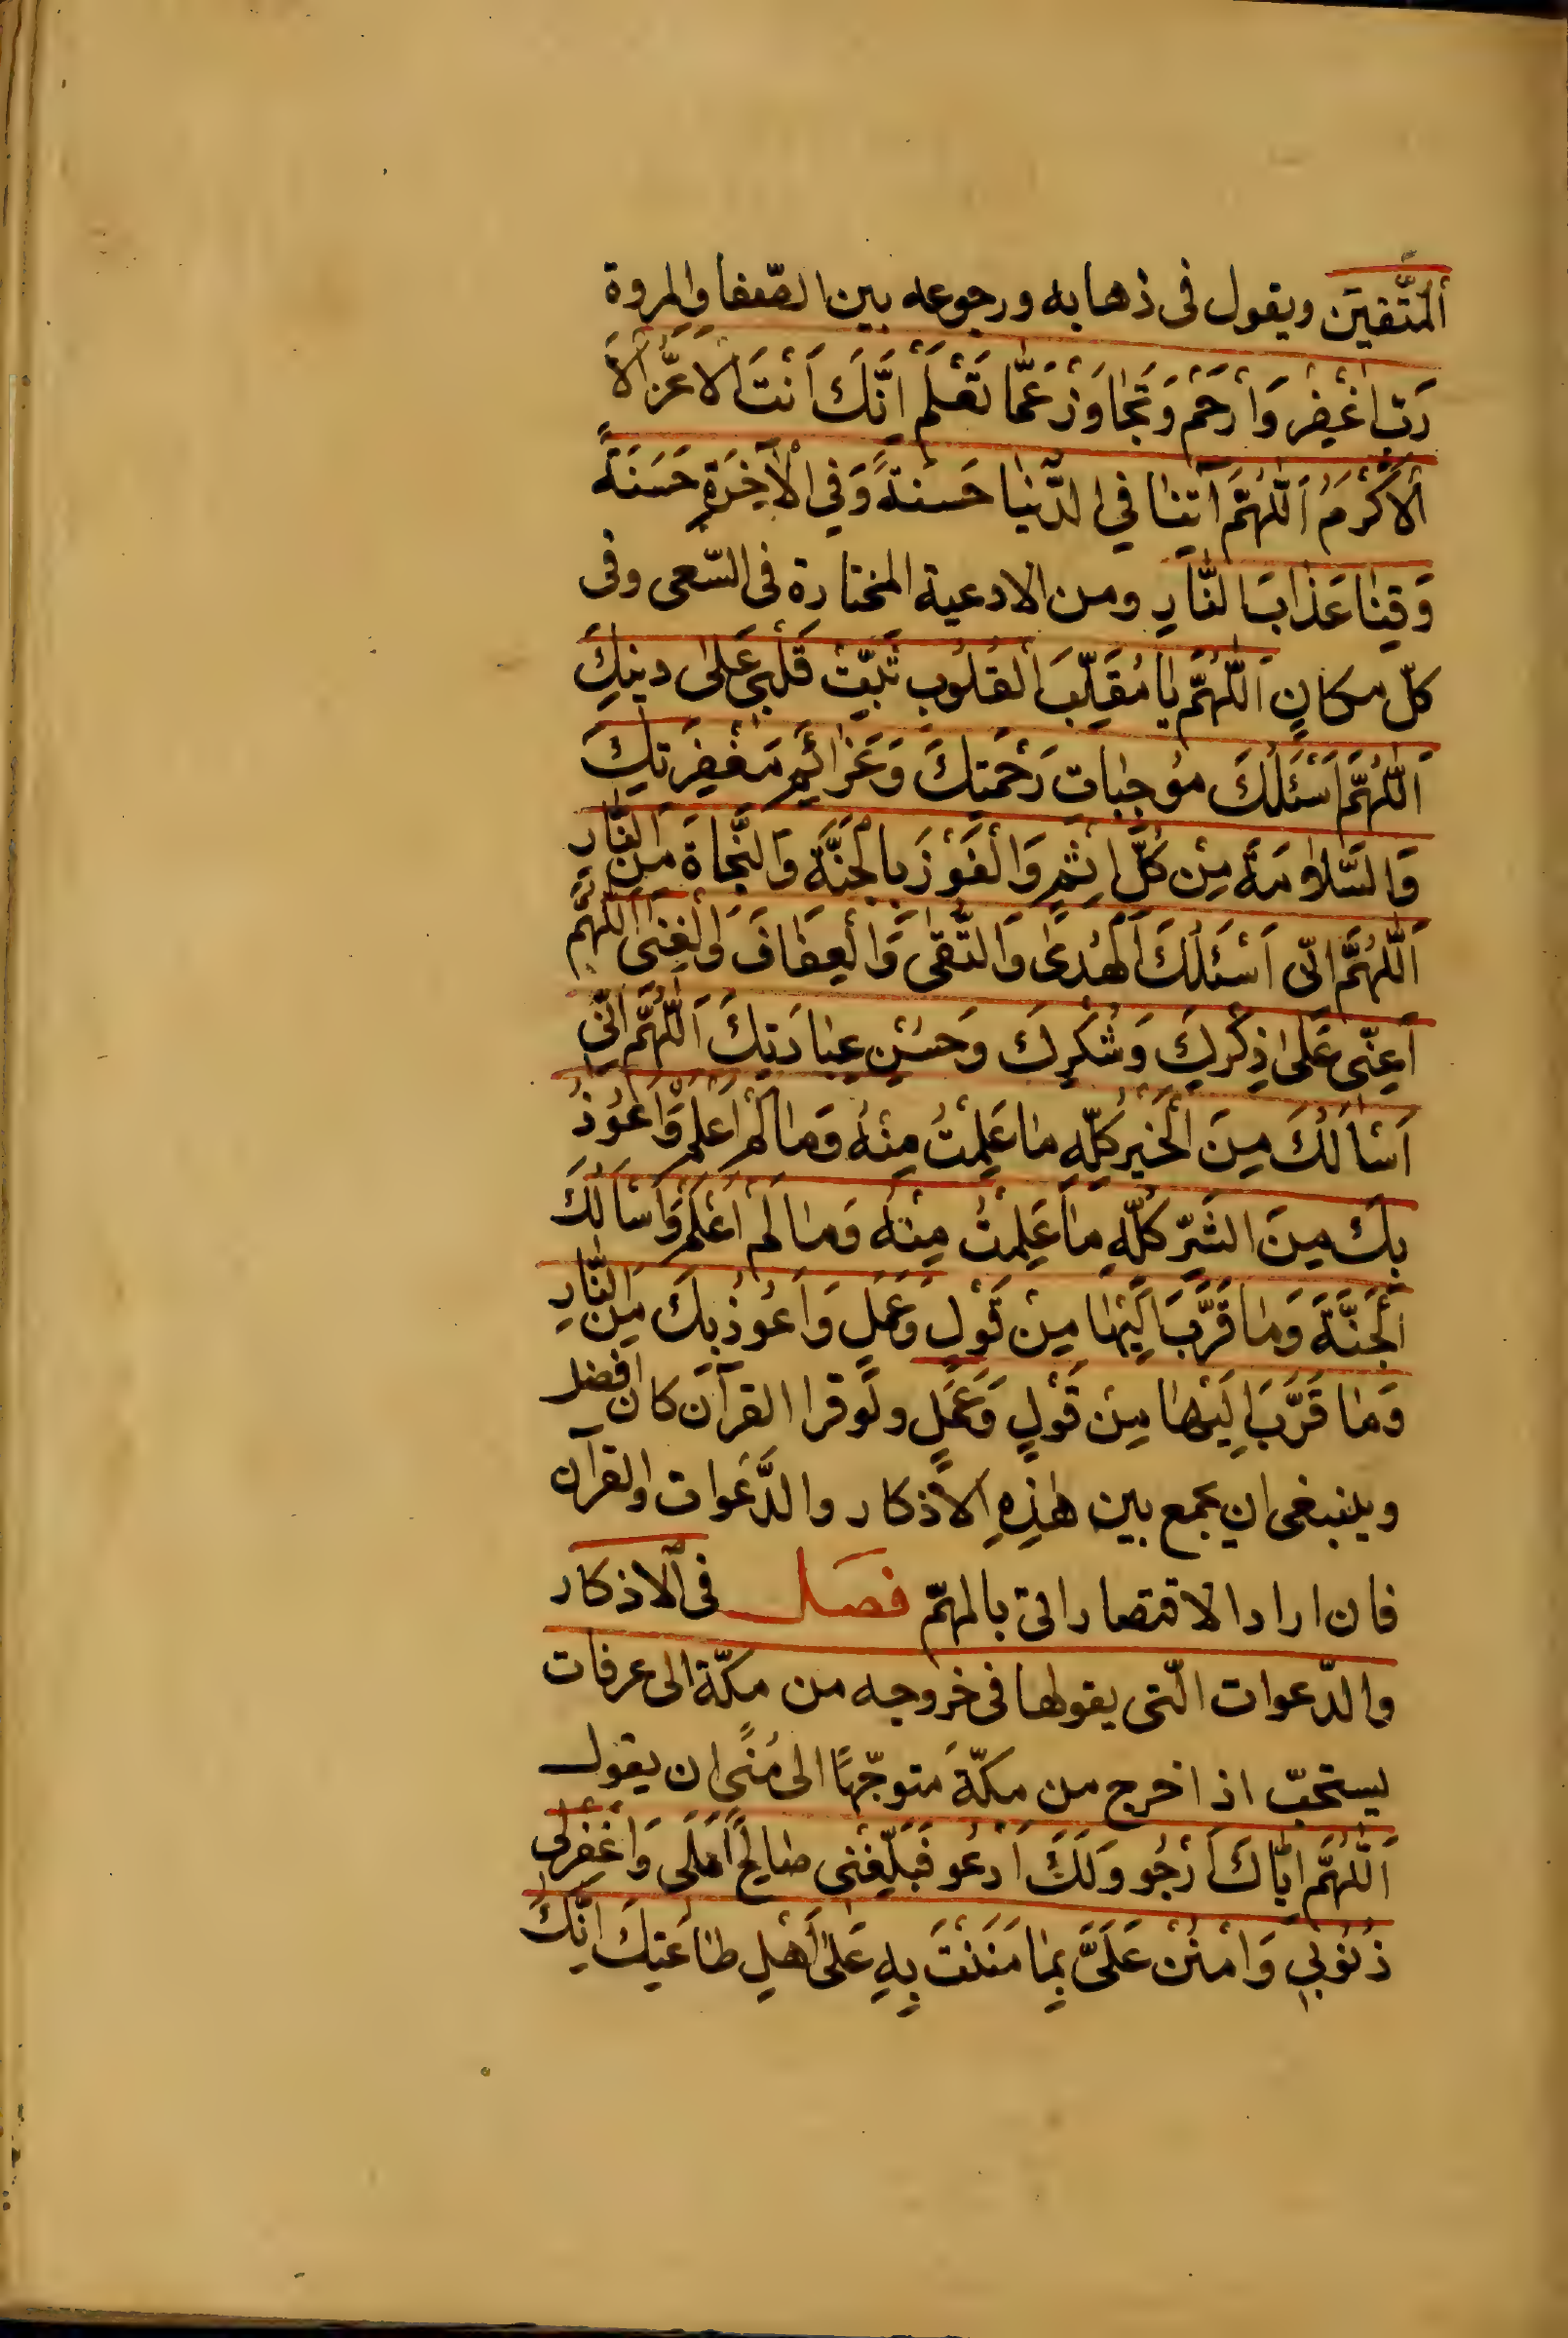 اَلْمُتَّقينَ ويقول فى ذهابه ورجوعه بين الصّفا والمروة
رَبِّ اغْفِر وَارْحَمْ وَتَجاوَزْ عَمّا تَعْلَمْ اِنَّكَ اَنْتَ الاَعَزُّ الاَ
اَلاَكْرَمُ اَللّهُمَّ آتِنا فِي الدُّنْيا حَسَنةً وَفِي الْآخِرَةِ حَسَنَةً
وَقِنا عَذابَ النّارِ ومن الادعية المختارة فى السّعى وفى
كلّ مكانٍ اَللّهُمَّ يا مُقَلِّبَ الْقُلُوبِ ثَبِّتْ قَلْبى عَلى دينِكَ
اَللّهُمَّ اَسْئَلُكَ مُوجِباتِ رَحْمَتِكَ وَعَزائِمِ مَغْفِرَتِكَ
وَالسَّلاوَمَةَ مِنْ كُلِّ اِثْمٍ وَالْفَوْزَ بِالْجَنَّةِ وَالنَّجاةَ مِنَ النّارِ
اَللّهُمَّ اِنّى اَسْئَلُكَ الْهُدى وَالتُّقى وَالْعِفافَ وَالْغِنى اَللّهُمَّ
اَعِنّى عَلى ذِكْرِكَ وَشُكْرِكَ وَحُسْنِ عِبادَتِكَ اَللّهُمَّ اِنّى
اَسْاَلُكَ مِنَ الْخَيْرِ كُلِّهِ ما عَلِمْتُ مِنْهُ وَما لَمْ اَعْلَمْ وَاَعُوذُ
بِكَ مِنَ الشَّرِّ كُلِّهِ ما عَلِمْتُ مِنْهُ وَما لَمْ اَعْلَمْ وَاَسْاَلُكَ
اَلْجَنَّةَ وَما قَرَّبَ اِلَيْها مِنْ قَوْلٍ وَعَمَلٍ وَاَعُوذُ بِكَ مِنَ النّارِ
وَما قَرَّبَ اِلَيْها مِنْ قَوْلٍ وَعَمَلٍ ولَو قرا القرآن كان افضل
وينبغى ان يجمع بين هذِهِ الاَذكار والدَّعَوات والقرآن
فان اراد الاقتصار اتى بالمهمّ فصل فى الاذكار
والدّعوات الّتى يقولها فى خروجه من مكّة الى عرفات
يستحبّ اذا خرج من مكّةَ متوجّهًا الى مُنًى ان يقول
اَللّهُمَّ اِيّاكَ اَرْجُو وَلَكَ اَدْعُو فَبَلِّغْنى صالِحَ اَمَلى وَاغْفِرْلى
ذُنُوبى وَامْنُنْ عَلَىَّ بِما مَنَنْتَ بِهِ عَلى اَهْلِ طاعَتِكَ اِنَّكَ